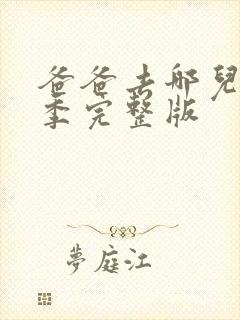 爸爸去哪兒
季完整版
夢庭江